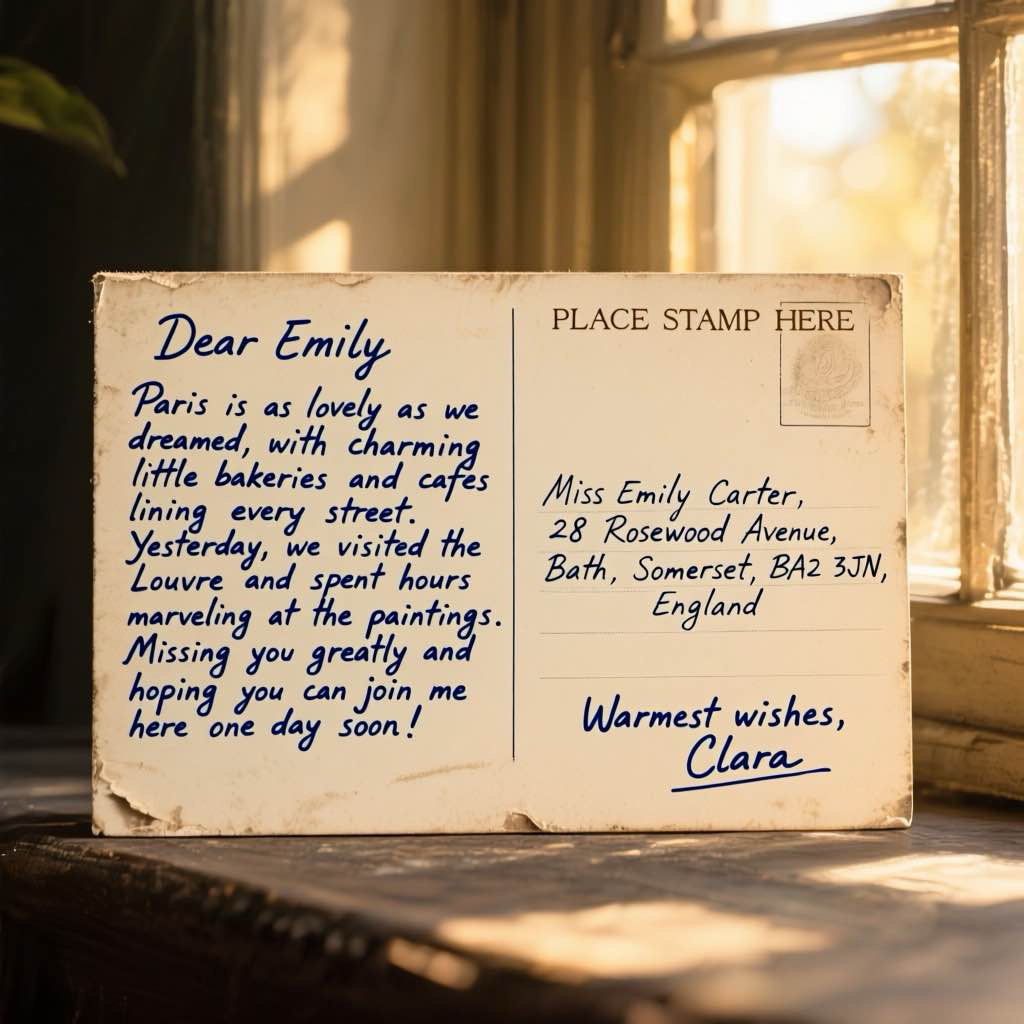 Dear Emily
Paris is as lovely as we
dreamed, with charming
little bakeries and cafes
lining every street.
Yesterday, we visited the
Louvre and spent hours
marveling at the paintings.
Missing you greatly and
hoping you can join me
here one day soon!
PLACE STAMP HERE
Miss Emily Carter,
28 Rosewood Avenue,
Bath, Somerset, BA2 3JN,
England
Warmest wishes,
Clara